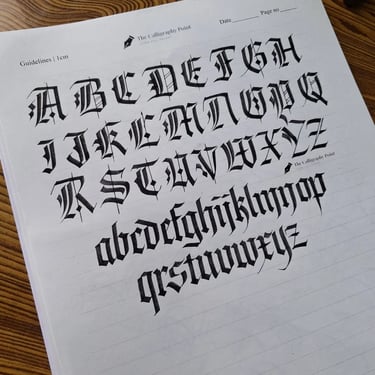 The Calligraphy Point
Guidelines | 1cm
Date
Page no
A B C D E F G H
I J K L M N O P Q
R S T U V W X Y Z
The Calligraphy Point
abcdefghijklmnop
qrstuvwxyz